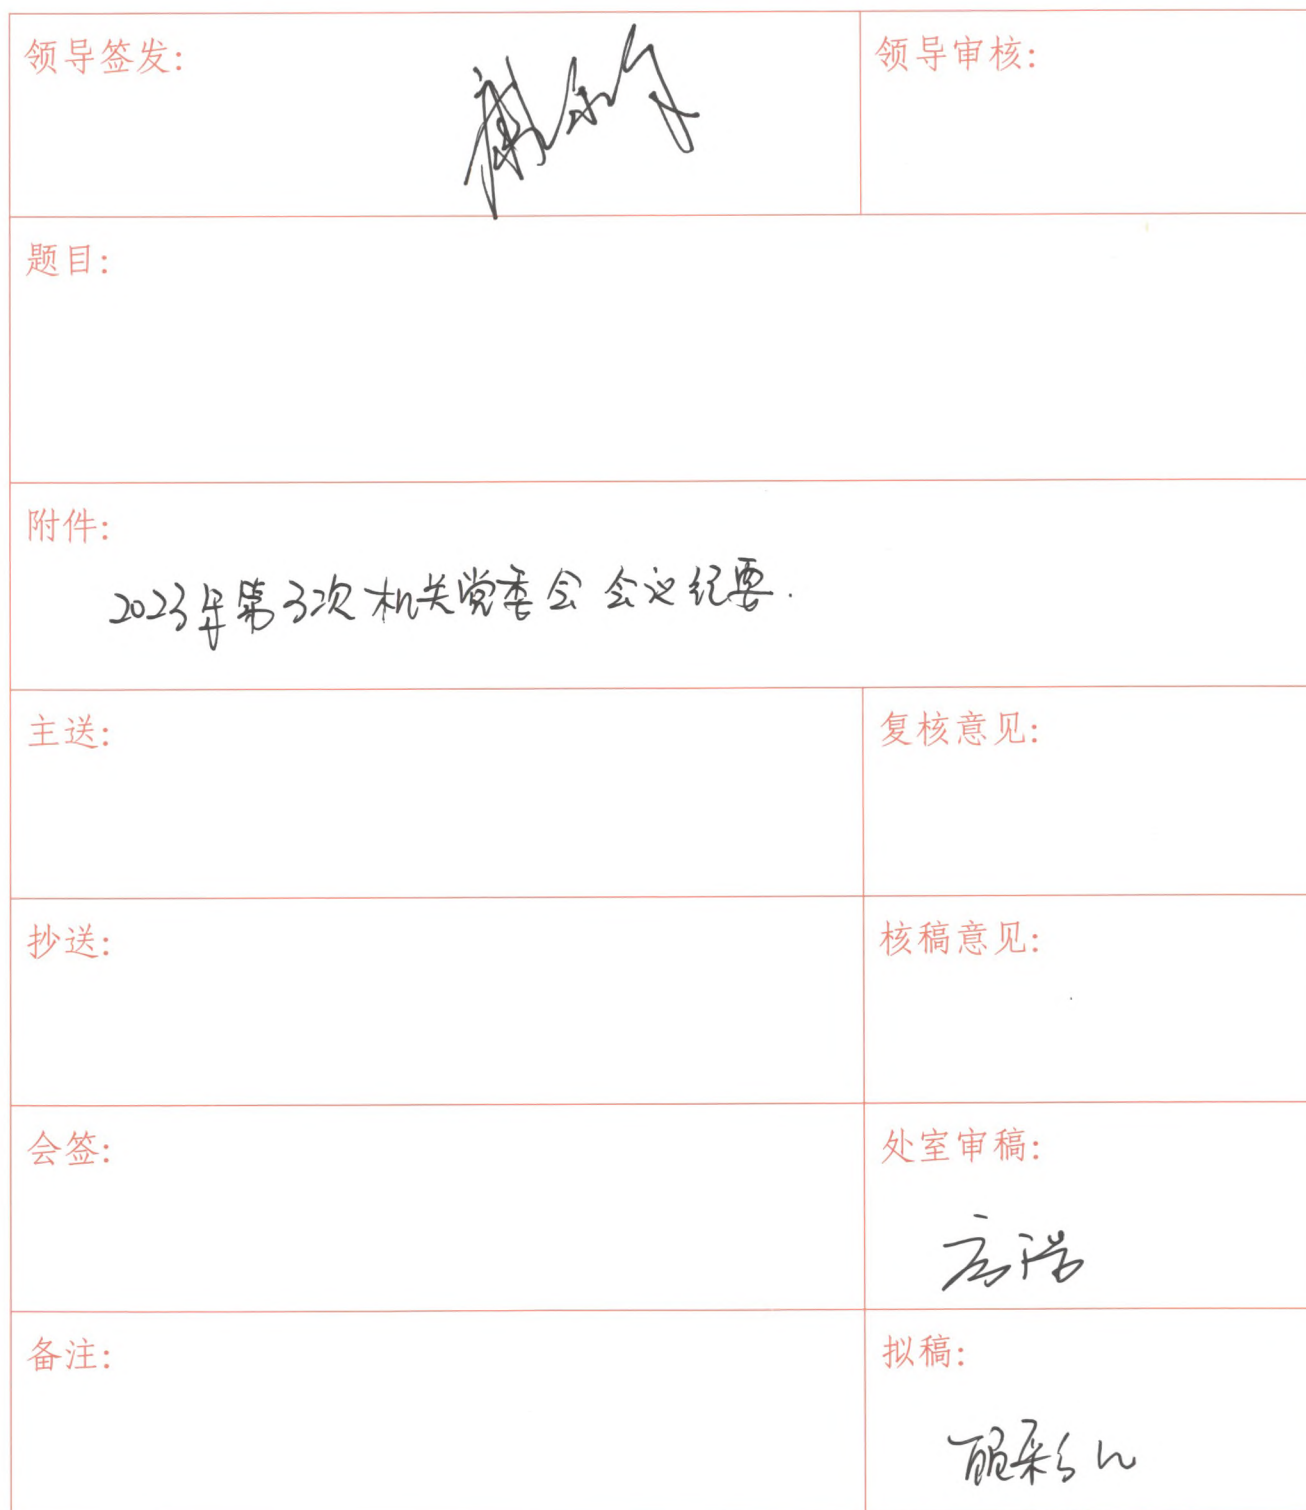 领导签发:
领导审核:
题目:
附件:
2023年第3次机关党委会会议纪要.
主送:
复核意见:
抄送:
核稿意见:
会签:
处室审稿:
备注:
拟稿: